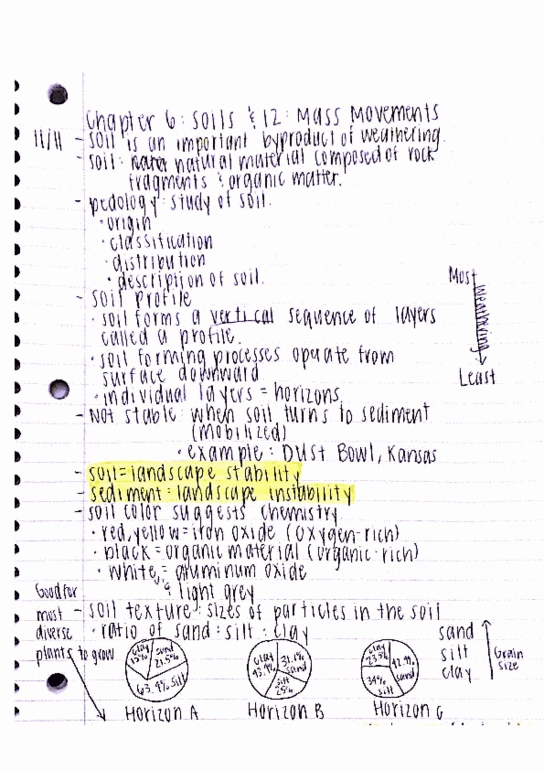 Chapter 6: Soils & 12: Mass Movements
11/11 - soil is an important byproduct of weathering.
- soil: natural material composed of rock
fragments & organic matter.
- pedology: study of soil.
• origin
• classification
• distribution
• description of soil.
- soil profile
• soil forms a vertical sequence of layers
called a profile.
• soil forming processes operate from
surface downward
• individual layers = horizons
Most
Weathering
Least
- Not stable: when soil turns to sediment
(mobilized)
• example: Dust Bowl, Kansas
- soil = landscape stability
- sediment = landscape instability
- soil color suggests chemistry
• red, yellow = iron oxide (oxygen-rich)
• black = organic material (organic-rich)
• white, = aluminum oxide
& light grey
- soil texture: sizes of particles in the soil
• ratio of sand: silt: clay
Good for
most
diverse
plants to grow
clay 15% sand 21.5% 63.4% silt
Horizon A
clay 31.1% sand silt 25%
Horizon B
clay sand 34% silt
Horizon C
sand
silt
clay
Grain
size